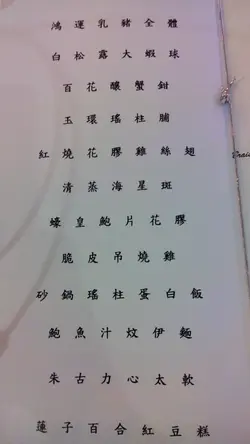 鴻運乳豬全體
白松露大蝦球
百花釀蟹鉗
玉環瑤柱脯
紅燒花膠雞絲翅
清蒸海星斑
蠔皇鮑片花膠
脆皮吊燒雞
砂鍋瑤柱蛋白飯
鮑魚汁炆伊麵
朱古力心太軟
蓮子百合紅豆糕